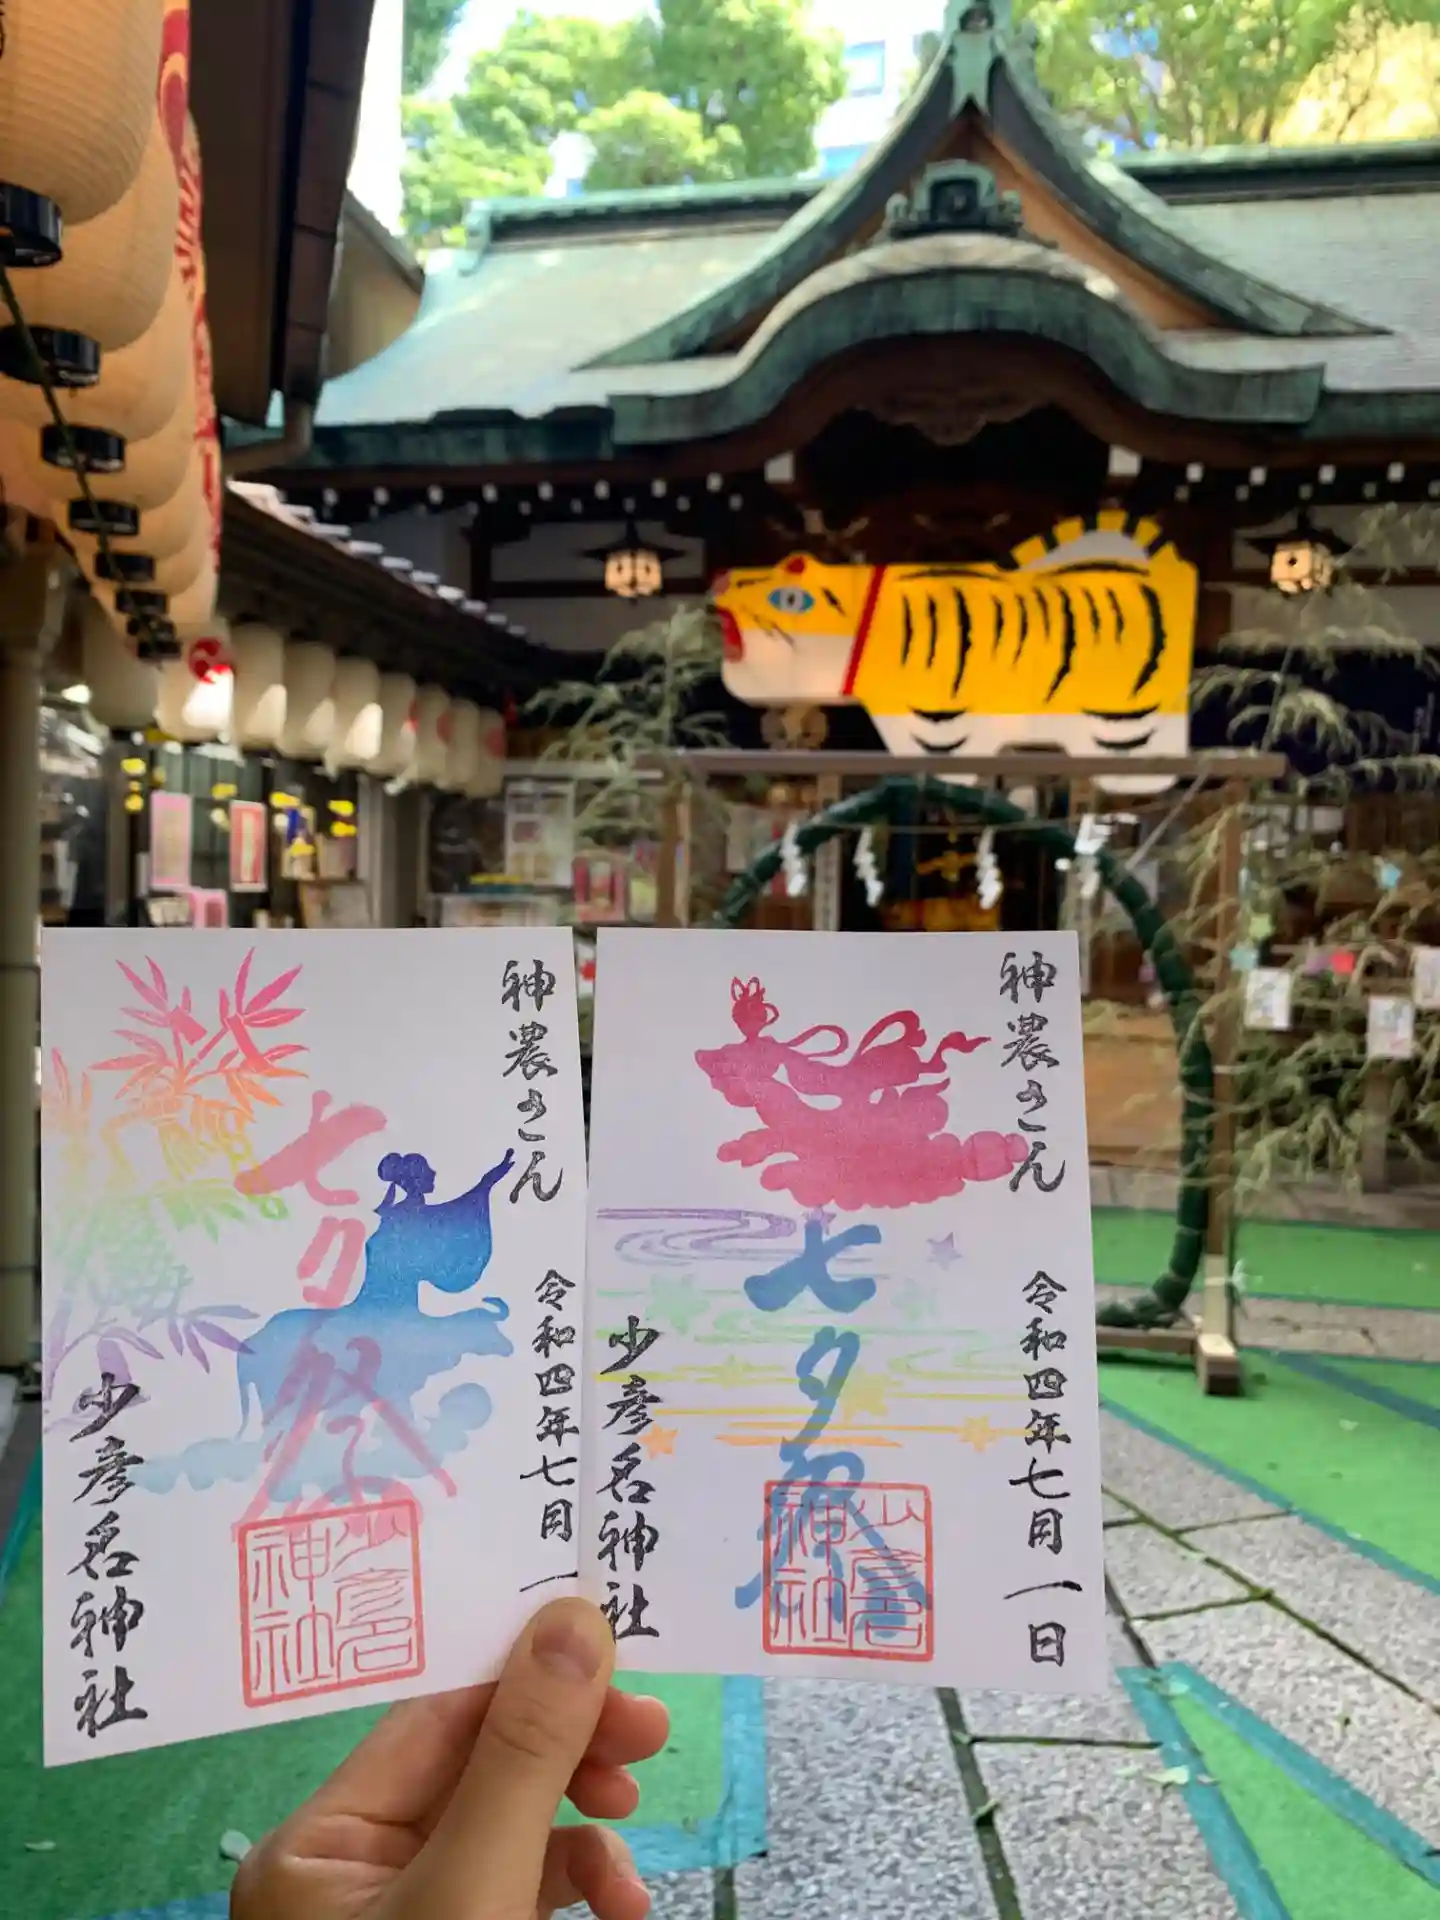 神農さん
七夕祭
令和四年七月一
少彦名神社
少彦名神社
神農さん
七夕祭
令和四年七月一日
少彦名神社
少彦名神社